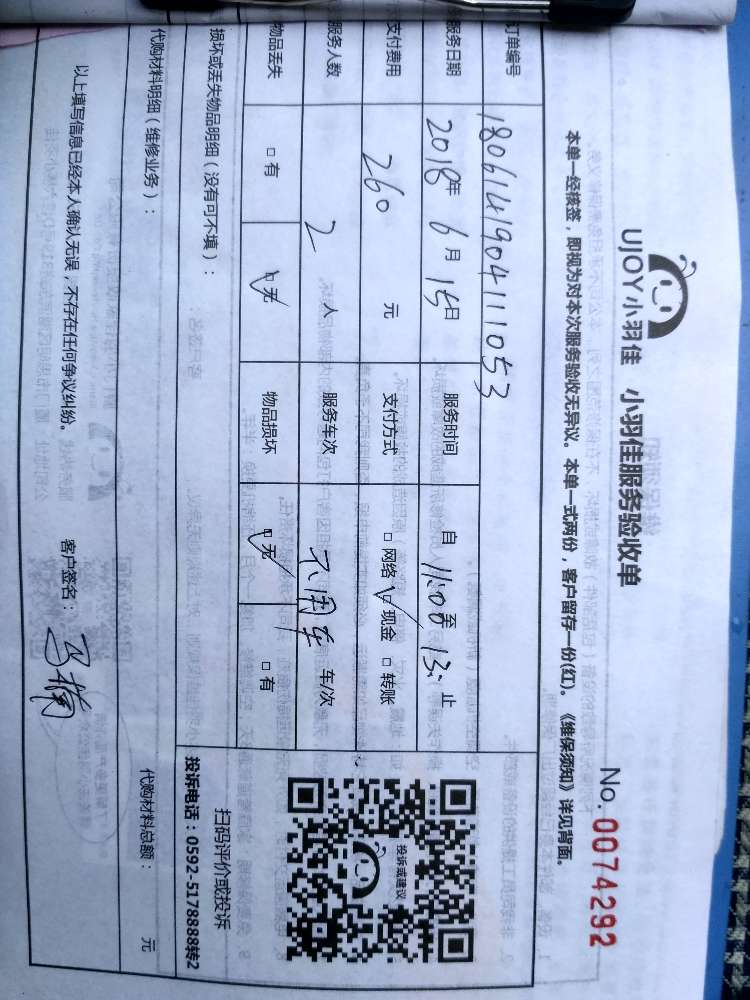 UJOY小羽佳 小羽佳服务验收单
No. 0074292
本单一经核签，即视为对本次服务验收无异议。本单一式两份，客户留存一份(红)。《维保须知》详见背面。
订单编号 180614190411053
服务日期 2018年 6月 15日 服务时间 自 11:00 至 13: 止
支付费用 260 元 支付方式 □ 网络 ☑ 现金 □ 转账
服务人数 2 人 服务车次 不用车 车/次
物品丢失 □ 有 ☑ 无 物品损坏 ☑ 无 □ 有
投诉或建议
扫码评价或投诉
投诉电话：0592-5178888转2
损坏或丢失物品明细（没有可不填）：
代购材料明细（维修业务）： 代购材料总额： 元
以上填写信息已经本人确认无误，不存在任何争议纠纷。 客户签名：